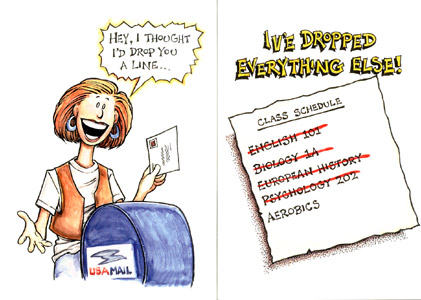 HEY, I THOUGHT
I'D DROP YOU
A LINE...
USA MAIL
I'VE DROPPED
EVERYTHING ELSE!
CLASS SCHEDULE
ENGLISH 101
BIOLOGY 1A
EUROPEAN HISTORY
PSYCHOLOGY 202
AEROBICS